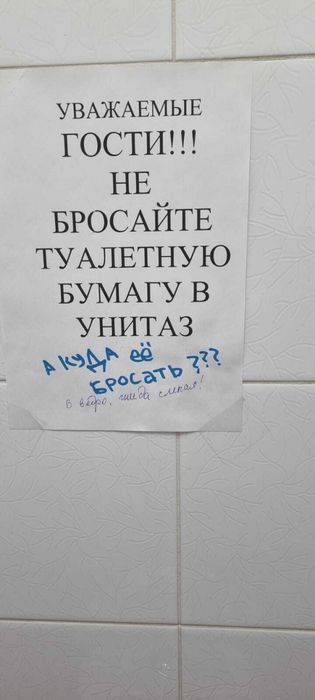 УВАЖАЕМЫЕ
ГОСТИ!!!
НЕ
БРОСАЙТЕ
ТУАЛЕТНУЮ
БУМАГУ В
УНИТАЗ
А КУДА её
БРОСАТЬ???
в ведро,